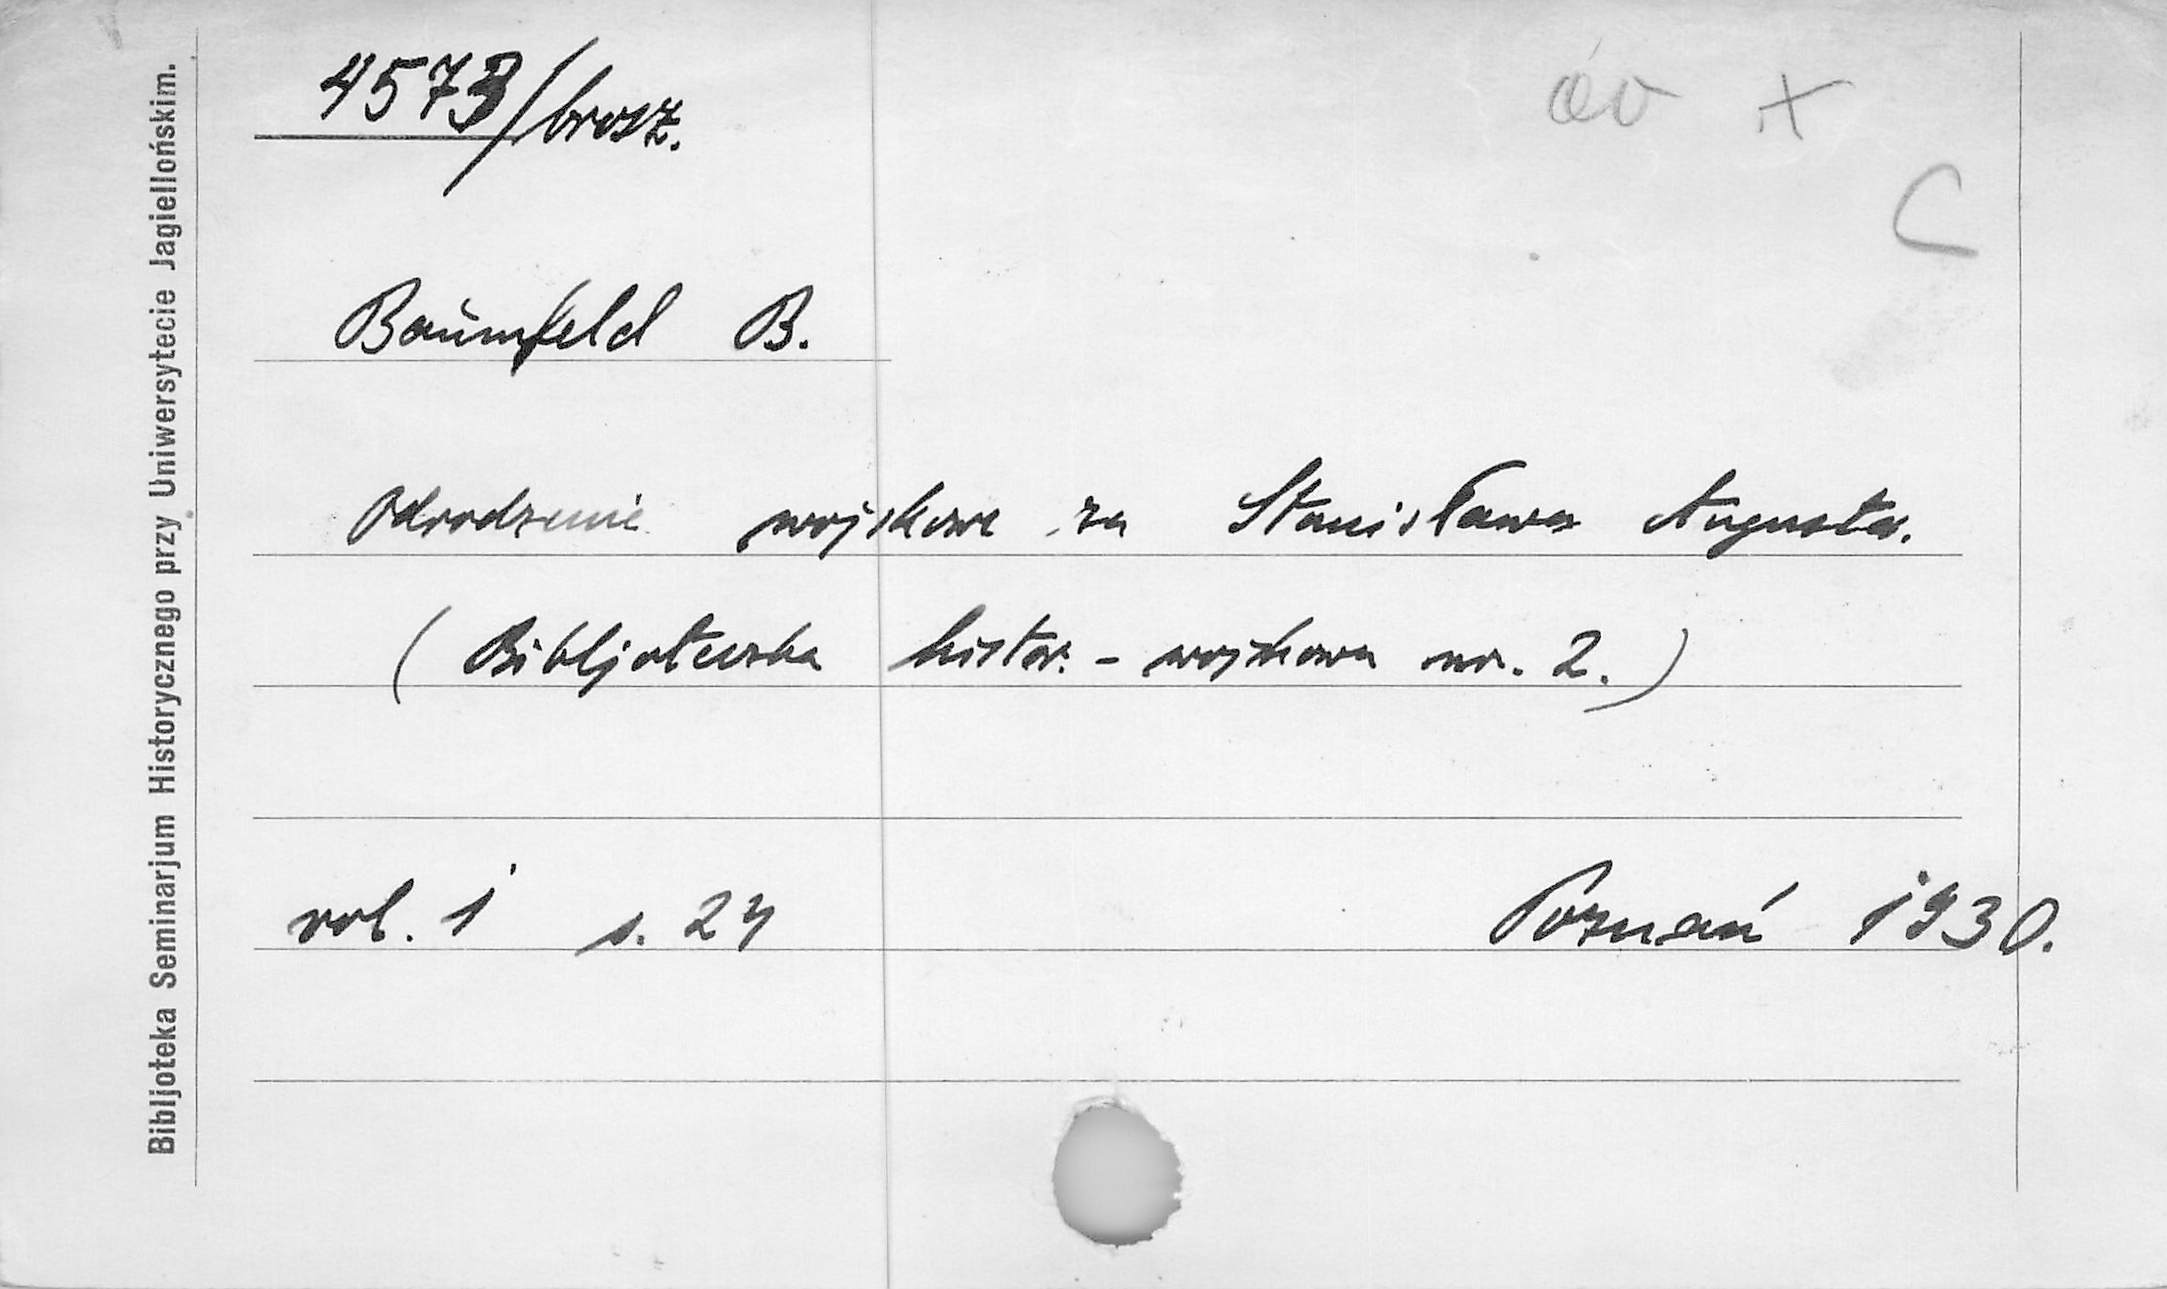 4573/brosz.
Baumfeld B.
Odrodzenie wojskowe za Stanisława Augusta.
(Bibljoteczka histor. - wojskowa nr. 2.)
vol. 1 s. 24
Poznań 1930.
Bibljoteka Seminarjum Historycznego przy Uniwersytecie Jagiellońskim.